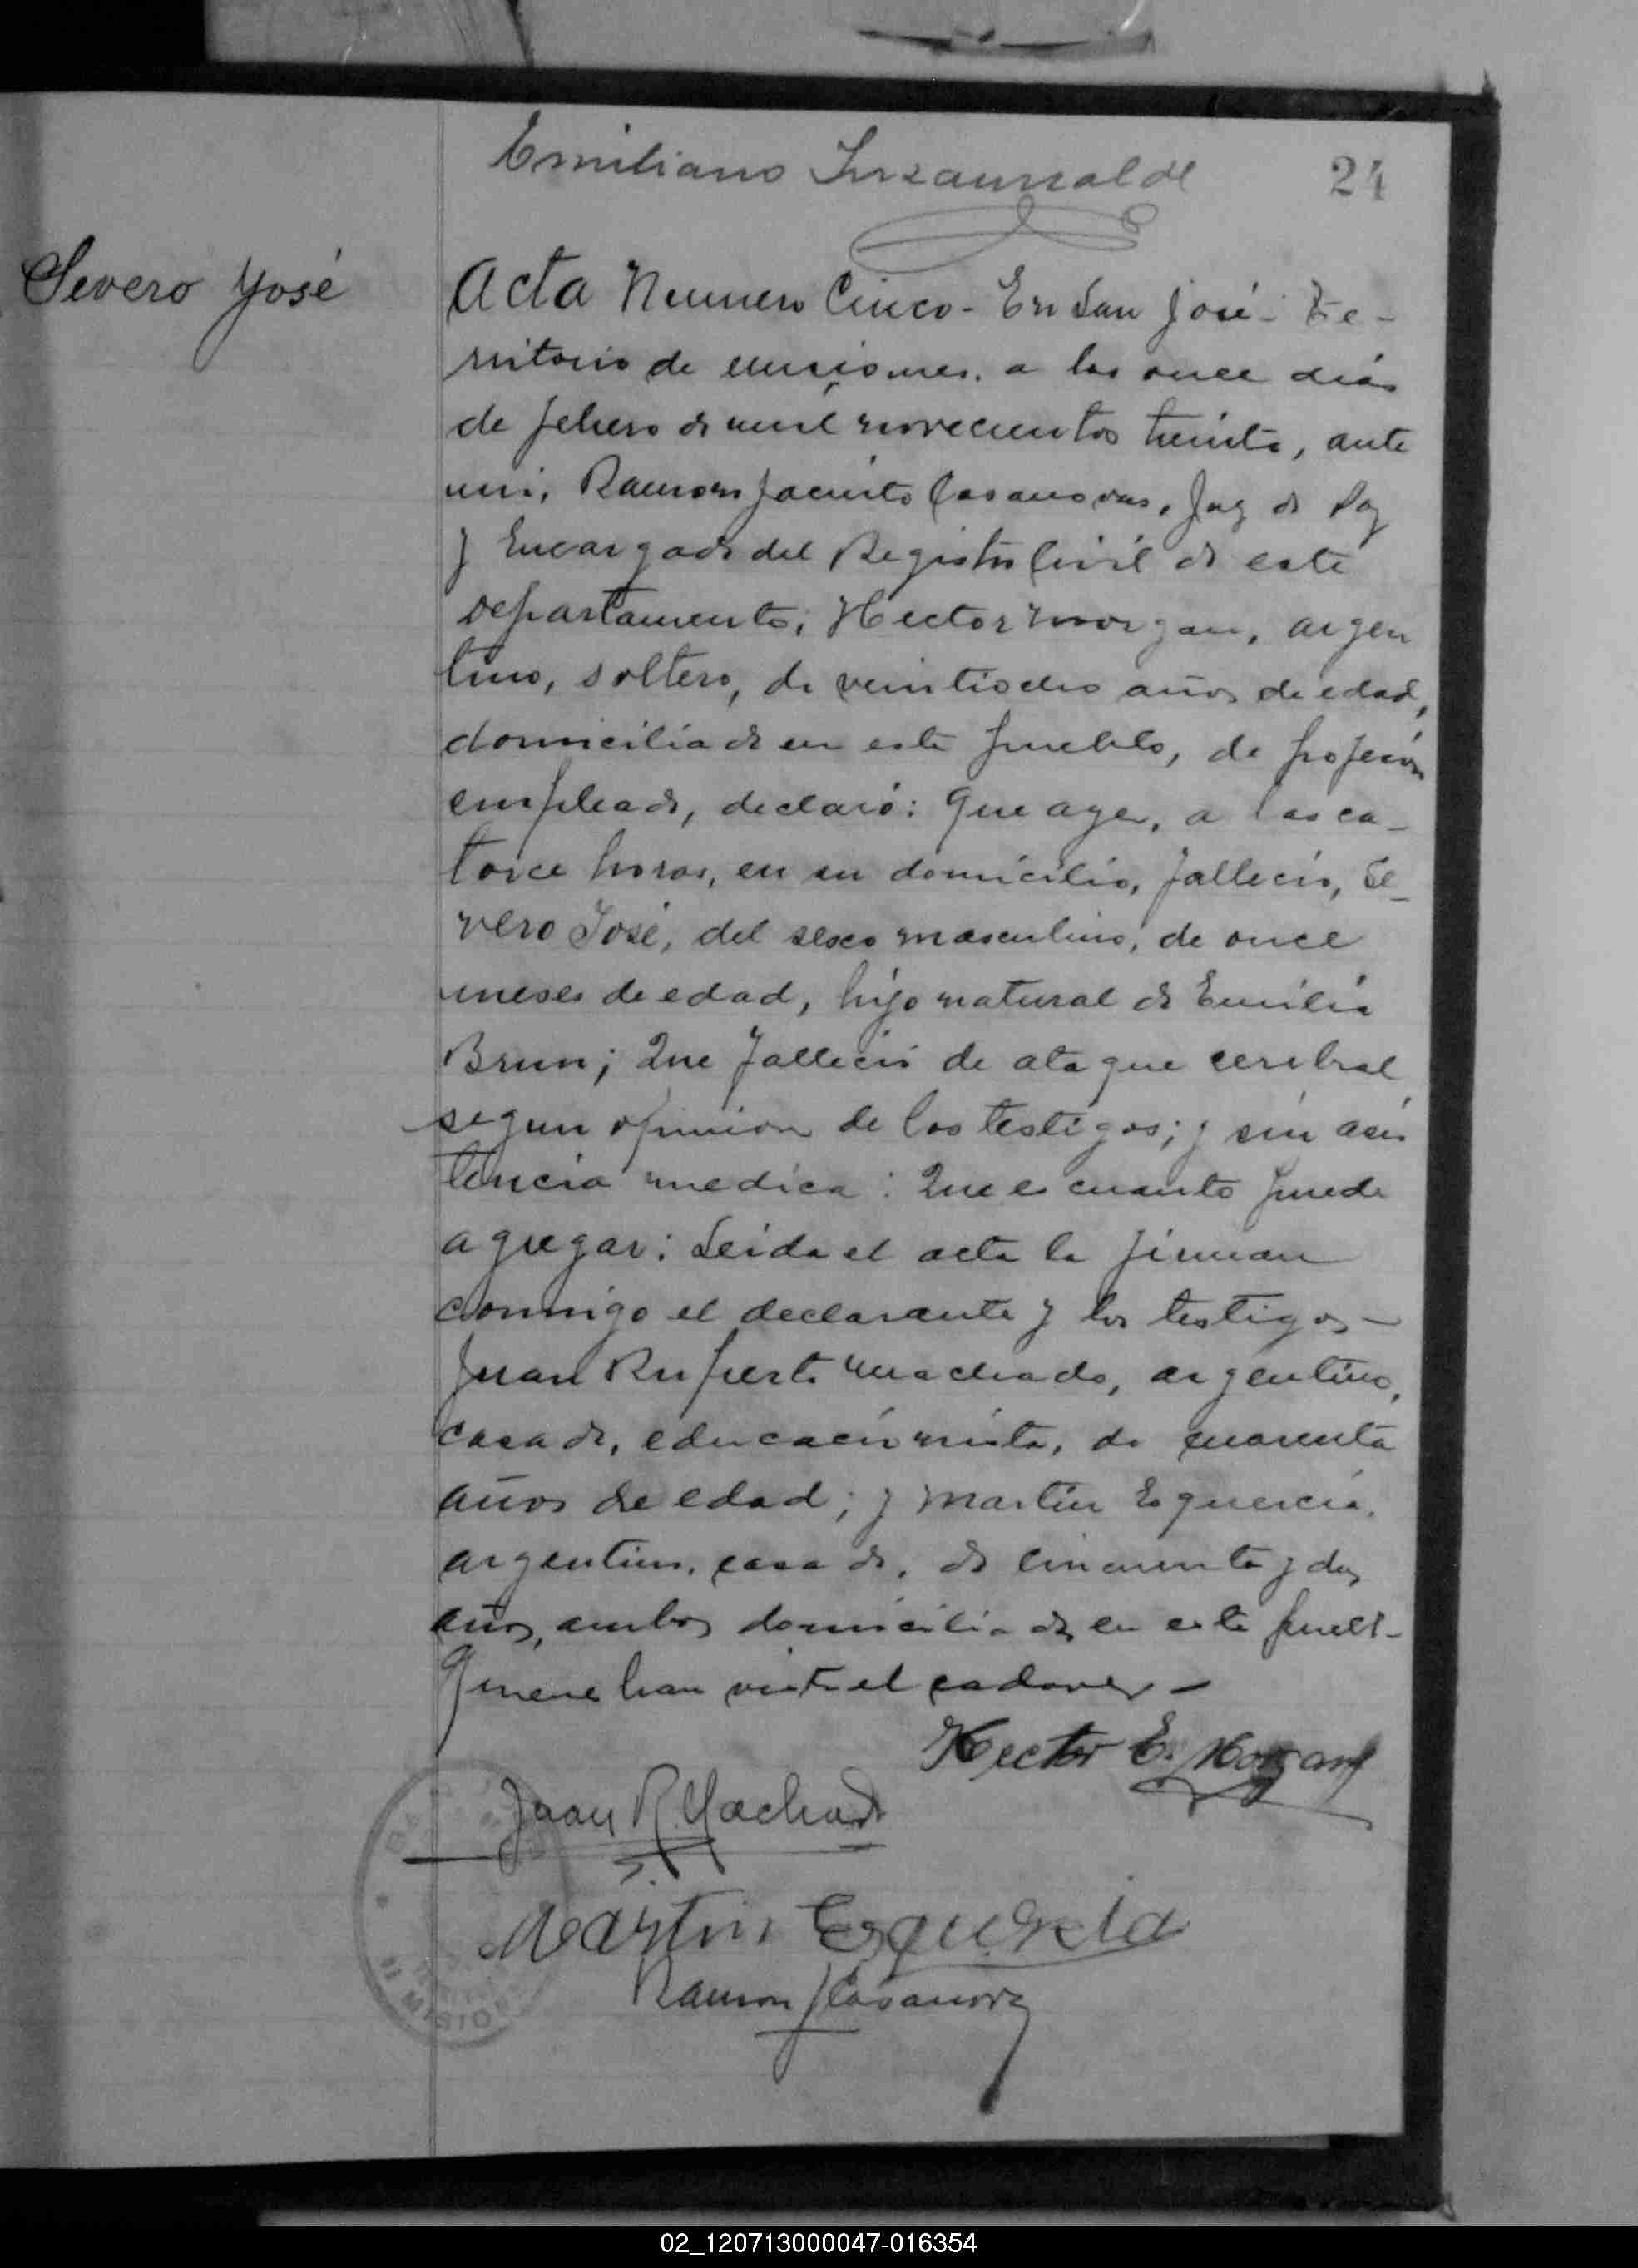 Emiliano Inzaurralde
24
Severo José
Acta Numero Cinco - En San José - Te-
rritorio de misiones, a los once dias
de febrero de mil novecientos treinta, ante
mi, Ramon Jacinto Casanovas, Juez de Paz
y Encargado del Registro Civil de este
departamento; Hector morgan, argen
tino, soltero, de veintiocho años de edad,
domiciliado en este pueblo, de profesión
empleado, declaró: Que ayer, a las ca-
torce horas, en su domicilio, falleció, Se-
vero José, del sexo masculino, de once
meses de edad, hijo natural de Emilia
Brun; Que falleció de ataque cerebral
segun opinion de los testigos; y sin asis
tencia medica: Que es cuanto puede
agregar: Leida el acta la firman
conmigo el declarante y los testigos -
Juan Ruperto machado, argentino,
casado, educacionista, de cuarenta
años de edad; y Martin Esquercia,
argentino, casado, de cincuenta y dos
años, ambos domiciliados en este pueblo-
Quienes han visto el cadaver -
Hector E. Morgan
Juan R. Machado
Martin Esquercia
Ramon J Casanova
MISIONES
02_120713000047-016354